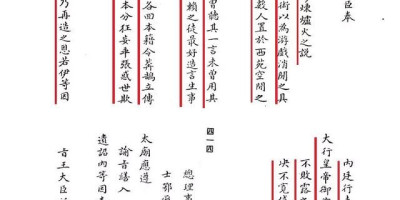 內廷行走
大行皇帝御
不敗露
決不寬
臣奉
煉爐火之說
術以為游戲消閒之具
數人置於西苑空閒之
曾聽其一言未曾用其
賴之徒最好造言生事
各回本籍令莽鵠立傳
本分狂妄乖張惑世欺
乃再造之恩若伊等因
四一四
總理事
士鄂
太廟應遵
諭旨繕入
遺詔內等因
旨王大臣